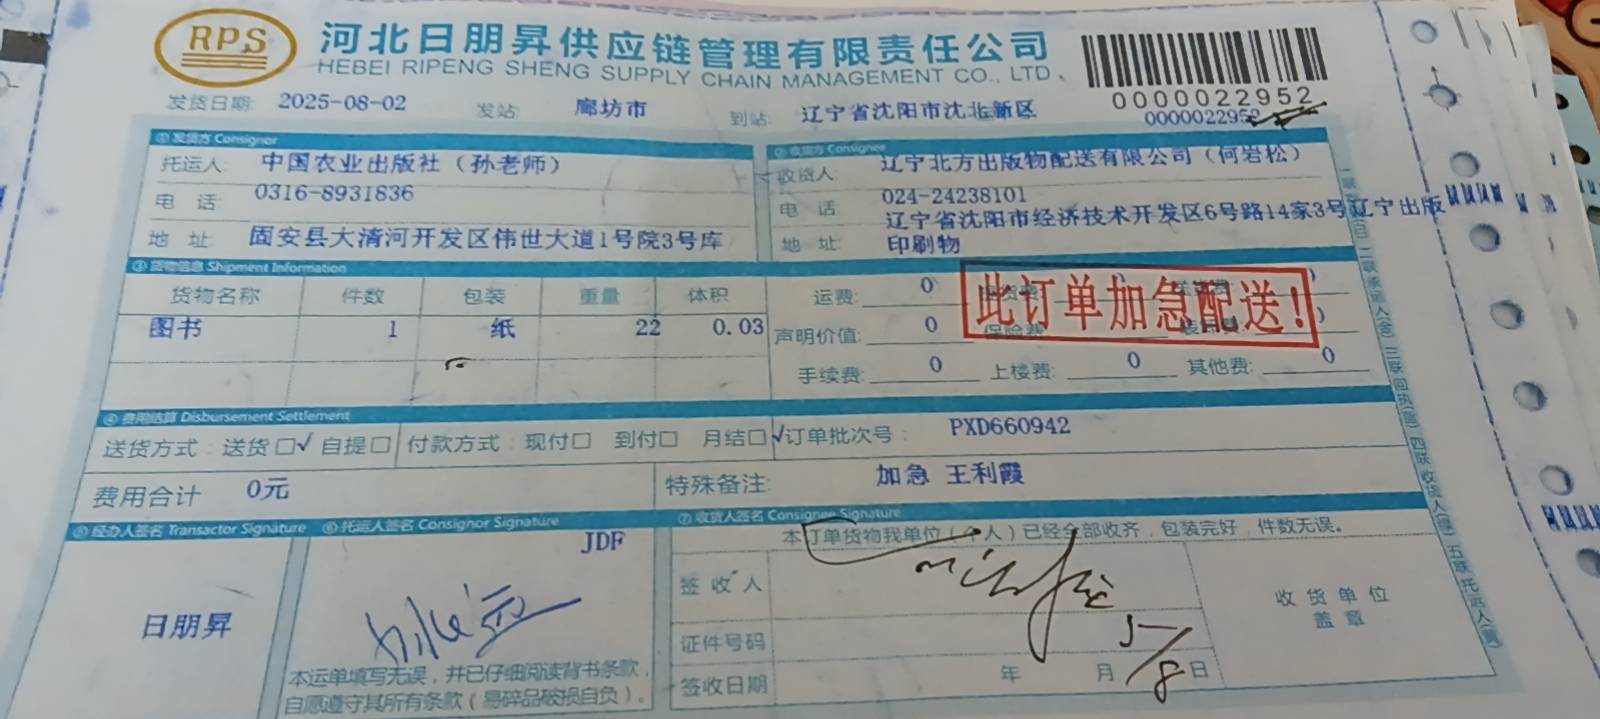 RPS
河北日朋昇供应链管理有限责任公司
HEBEI RIPENG SHENG SUPPLY CHAIN MANAGEMENT CO., LTD.
0000022952
发货日期: 2025-08-02 发站: 廊坊市 到站: 辽宁省沈阳市沈北新区
0000022952
① 发货方 Consignor
② 收货方 Consignee
托运人: 中国农业出版社（孙老师）
收货人 辽宁北方出版物配送有限公司（何岩松）
电 话 0316-8931836
电 话 024-24238101
地 址 固安县大清河开发区伟世大道1号院3号库
地 址: 辽宁省沈阳市经济技术开发区6号路14家3号辽宁出版
印刷物
③ 货物信息 Shipment Information
货物名称 件数 包装 重量 体积
图书 1 纸 22 0.03
运费: 0
此订单加急配送!
声明价值: 0 保险费
手续费: 0 上楼费: 0 其他费: 0
④ 费用结算 Disbursement Settlement
送货方式: 送货□√ 自提□ 付款方式: 现付□ 到付□ 月结□√ 订单批次号: PXD660942
费用合计 0元
特殊备注: 加急 王利霞
⑤ 经办人签名 Transactor Signature
⑥ 托运人签名 Consignor Signature
⑦ 收货人签名 Consignee Signature
日朋昇
JDF
本运单填写无误，并已仔细阅读背书条款，
自愿遵守其所有条款（易碎品破损自负）。
本订单货物我单位（个人）已经全部收齐，包装完好，件数无误。
签收人
证件号码
签收日期 年 月 日
5/8
收货单位
盖章